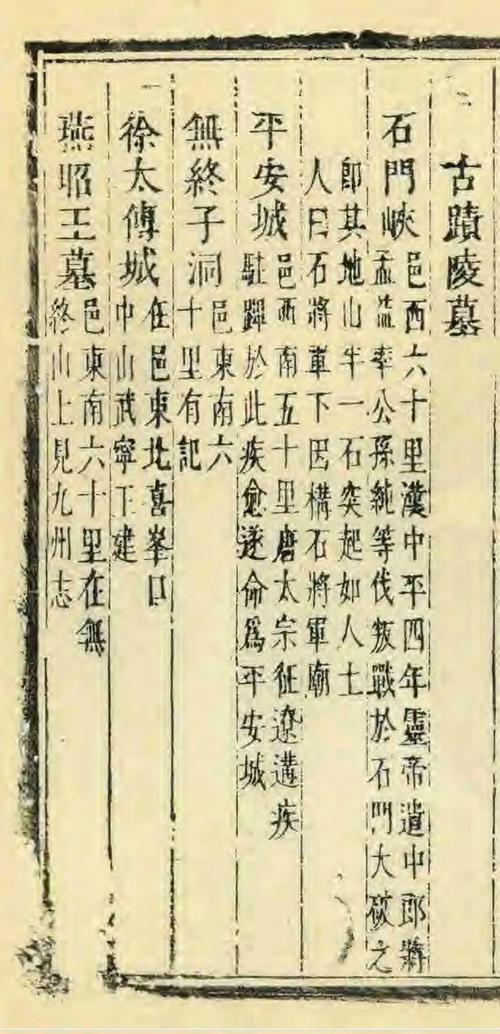 古蹟陵墓
石門峽邑西六十里漢中平四年靈帝遣中郎將
孟益率公孫純等伐叛戰於石門大破之
即其地山半一石突起如人土
人曰石將軍下因構石將軍廟
平安城邑西南五十里唐太宗征遼遘疾
駐蹕於此疾愈遂命爲平安城
無終子洞邑東南六
十里有記
徐太傅城在邑東北喜峯口
中山武寧王建
燕昭王墓邑東南六十里在無
終山上見九州志